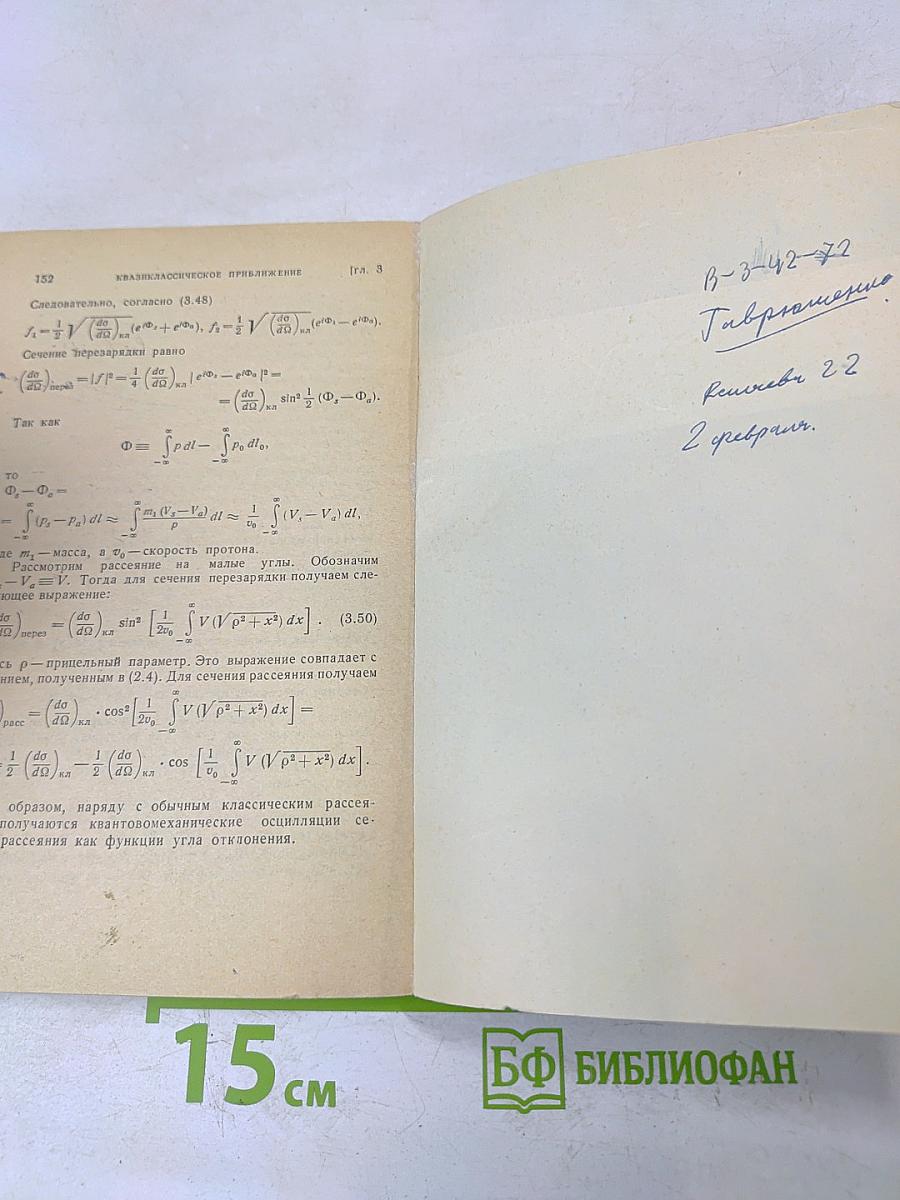 152 КВАЗИКЛАССИЧЕСКОЕ ПРИБЛИЖЕНИЕ [гл. 3
Следовательно, согласно (3.48)
f₁ = 1/2 √(dσ/dΩ)кл (e^{iΦs} + e^{iΦa}), f₂ = 1/2 √(dσ/dΩ)кл (e^{iΦs} − e^{iΦa}).
Сечение перезарядки равно
(dσ/dΩ)перез = |f|² = 1/4 (dσ/dΩ)кл | e^{iΦs} − e^{iΦa} |² =
= (dσ/dΩ)кл sin² 1/2 (Φs − Φa).
Так как
Φ ≡ ∫_{−∞}^{∞} p dl − ∫_{−∞}^{∞} p₀ dl₀,
то
Φs − Φa =
= ∫_{−∞}^{∞} (ps − pa) dl ≈ ∫_{−∞}^{∞} m₁ (Vs − Va)/p dl ≈ 1/v₀ ∫_{−∞}^{∞} (Vs − Va) dl,
де m₁ — масса, а v₀ — скорость протона.
Рассмотрим рассеяние на малые углы. Обозначим
− Va ≡ V. Тогда для сечения перезарядки получаем сле-
ующее выражение:
(dσ/dΩ)перез = (dσ/dΩ)кл sin² [1/2v₀ ∫_{−∞}^{∞} V (√ρ² + x²) dx] . (3.50)
сь ρ — прицельный параметр. Это выражение совпадает с
нием, полученным в (2.4). Для сечения рассеяния получаем
)расс = (dσ/dΩ)кл · cos² [1/2v₀ ∫_{−∞}^{∞} V (√ρ² + x²) dx] =
= 1/2 (dσ/dΩ)кл − 1/2 (dσ/dΩ)кл · cos [1/v₀ ∫_{−∞}^{∞} V (√ρ² + x²) dx].
образом, наряду с обычным классическим рассея-
получаются квантовомеханические осцилляции се-
рассеяния как функции угла отклонения.
В-3-42-72
Гаврюшенко
22
2 февраля.
15 см
БФ БИБЛИОФАН